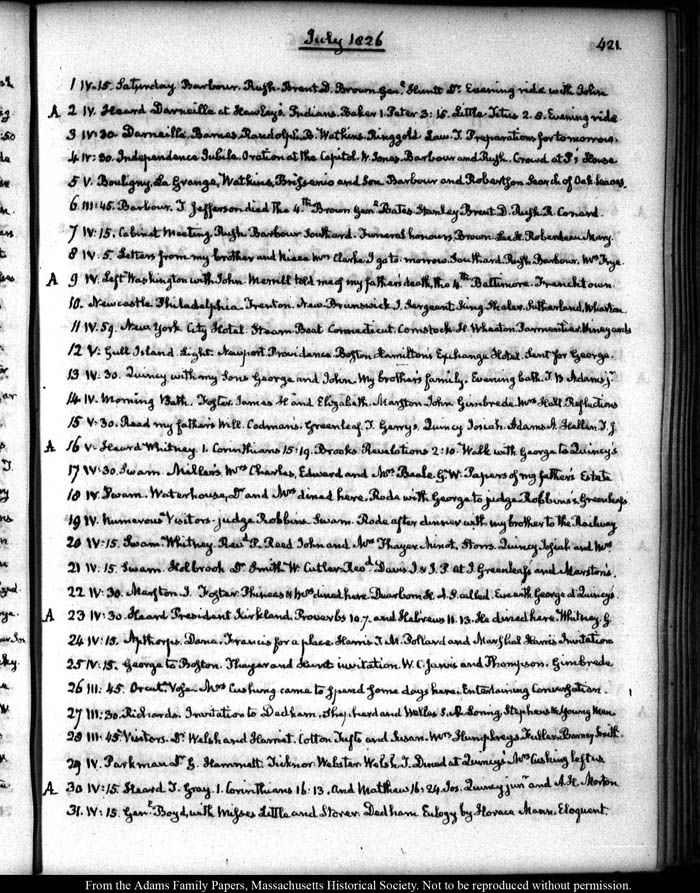 July 1826
421
1 IV.15. Saturday Barbour. Rush. Brent D. Brown Genl. Huntt Dr. Evening ride with John
A 2 IV. Heard Darneille at Hawley's Indians. Baker 1. Peter 3:15. Little Titus 2.8. Evening ride
3 IV:30. Darneille, Barnes, Randolph. B. Watkins Ringgold Law. T. Preparations for tomorrow.
4 IV:30. Independence Jubile. Oration at the Capitol. W. Jones. Barbour and Rush. Crowd at P's House
5 V. Bouligny. La Grange, Watkins, and Son Barbour and Robertson Search of Oak Leaves.
6 III:45. Barbour. T. Jefferson died the 4th. Brown Genl. Bates Stanley Brent D. Rush R. Conard.
7 IV:15. Cabinet Meeting. Rush Barbour Southard. Funeral honours. Brown Lee. Roberdeau Mary.
8 IV:5. Letters from my brother and Niece Mrs. Clarke. I go to-morrow. Southard Rush Barbour. Mrs. Frye.
A 9 IV. Left Washington with John. Merrill told me of my father's death, the 4th. Baltimore. Frenchtown.
10. Newcastle. Philadelphia. Trenton. New-Brunswick J. Sergeant King Sutherland, Wharton
11 IV:59. New York City Hotel. Steam Boat Connecticut. Comstock. H. Wheaton Parmentier Vineyards
12 V: Gull Island Light. Newport Providence Boston Hamilton's Exchange Hotel. Sent for George.
13 IV:30. Quincy with my Sons George and John. My brother's family. Evening bath. T B Adams jr.
14 IV. Morning Bath. Foster, James H and Elizabeth. Marston John Gimbrede. Mrs. Hall Reflections
15 V:30. Read my father's Will. Codmans. Greenleaf. T. Gerrys. Quincy Josiah. Adams A. Hallen T. J.
A 16 V. Heard Whitney. 1. Corinthians 15:19. Brooks. Revelations 2:10. Walk with George to Quincy's
17 IV:30. Swam. Miller's Mrs. Charles, Edward and Mrs. Beale G. W. Papers of my father's Estate
18 IV. Swam. Waterhouse, Dr. and Mrs. dined here. Rode with George to judge Robbins's Greenleafs
19 IV. Numerous Visitors—judge Robbins. Swam. Rode after dinner with my brother to the Railway
20 IV:15. Swam. Whitney. Revd. P. Reed John and Mrs. Thayer. Minot. Storrs. Quincy Josiah and Mrs.
21 IV:15. Swam. Holbrook Dr. Smith. W. Cutler. Revd. Davis J & J. P. at J. Greenleafs and Marston's.
22 IV:30. Marston J. Foster Phineas & Mrs. dined here. Dearborn H. A. S. called. Eve with George at Quincy's.
A 23 IV:30. Heard President Kirkland. Proverbs 10.7. and Hebrews 11.13. He dined here. Whitney. G.
24 IV:15. Apthorps. Dana. Francis for a place. Harris T. M. Pollard and Marshal Harris Invitation
25 IV:15. George to Boston. Thayer and Hunt invitation. W. C. Jarvis and Thompson. Gimbrede
26 III:45. Vose. Mrs. Cushing came to spend some days here. Entertaining Conversation.
27 III:30. Richards. Invitation to Dedham. Shepherd and Welles S. A. Loring, Stephens & Young Men
28 III:45. Visitors. Dr. Welsh and Harriet. Cotton Tufts and Susan. Mrs. Humphreys. Fuller. Barney Smith.
29 IV. Parkman Dr. G. Hammatt. Ticknor Webster Welsh T. Dined at Quincy's. Mrs. Cushing left us
A 30 IV:15. Heard T. Gray. 1. Corinthians 16:13. and Matthew 16:24. Jos. Quincy junr. and A. H. Morton
31. IV:15. Genl. Boyd, with Misses Little and Storer. Dedham. Eulogy by Horace Mann. Eloquent.
From the Adams Family Papers, Massachusetts Historical Society. Not to be reproduced without permission.